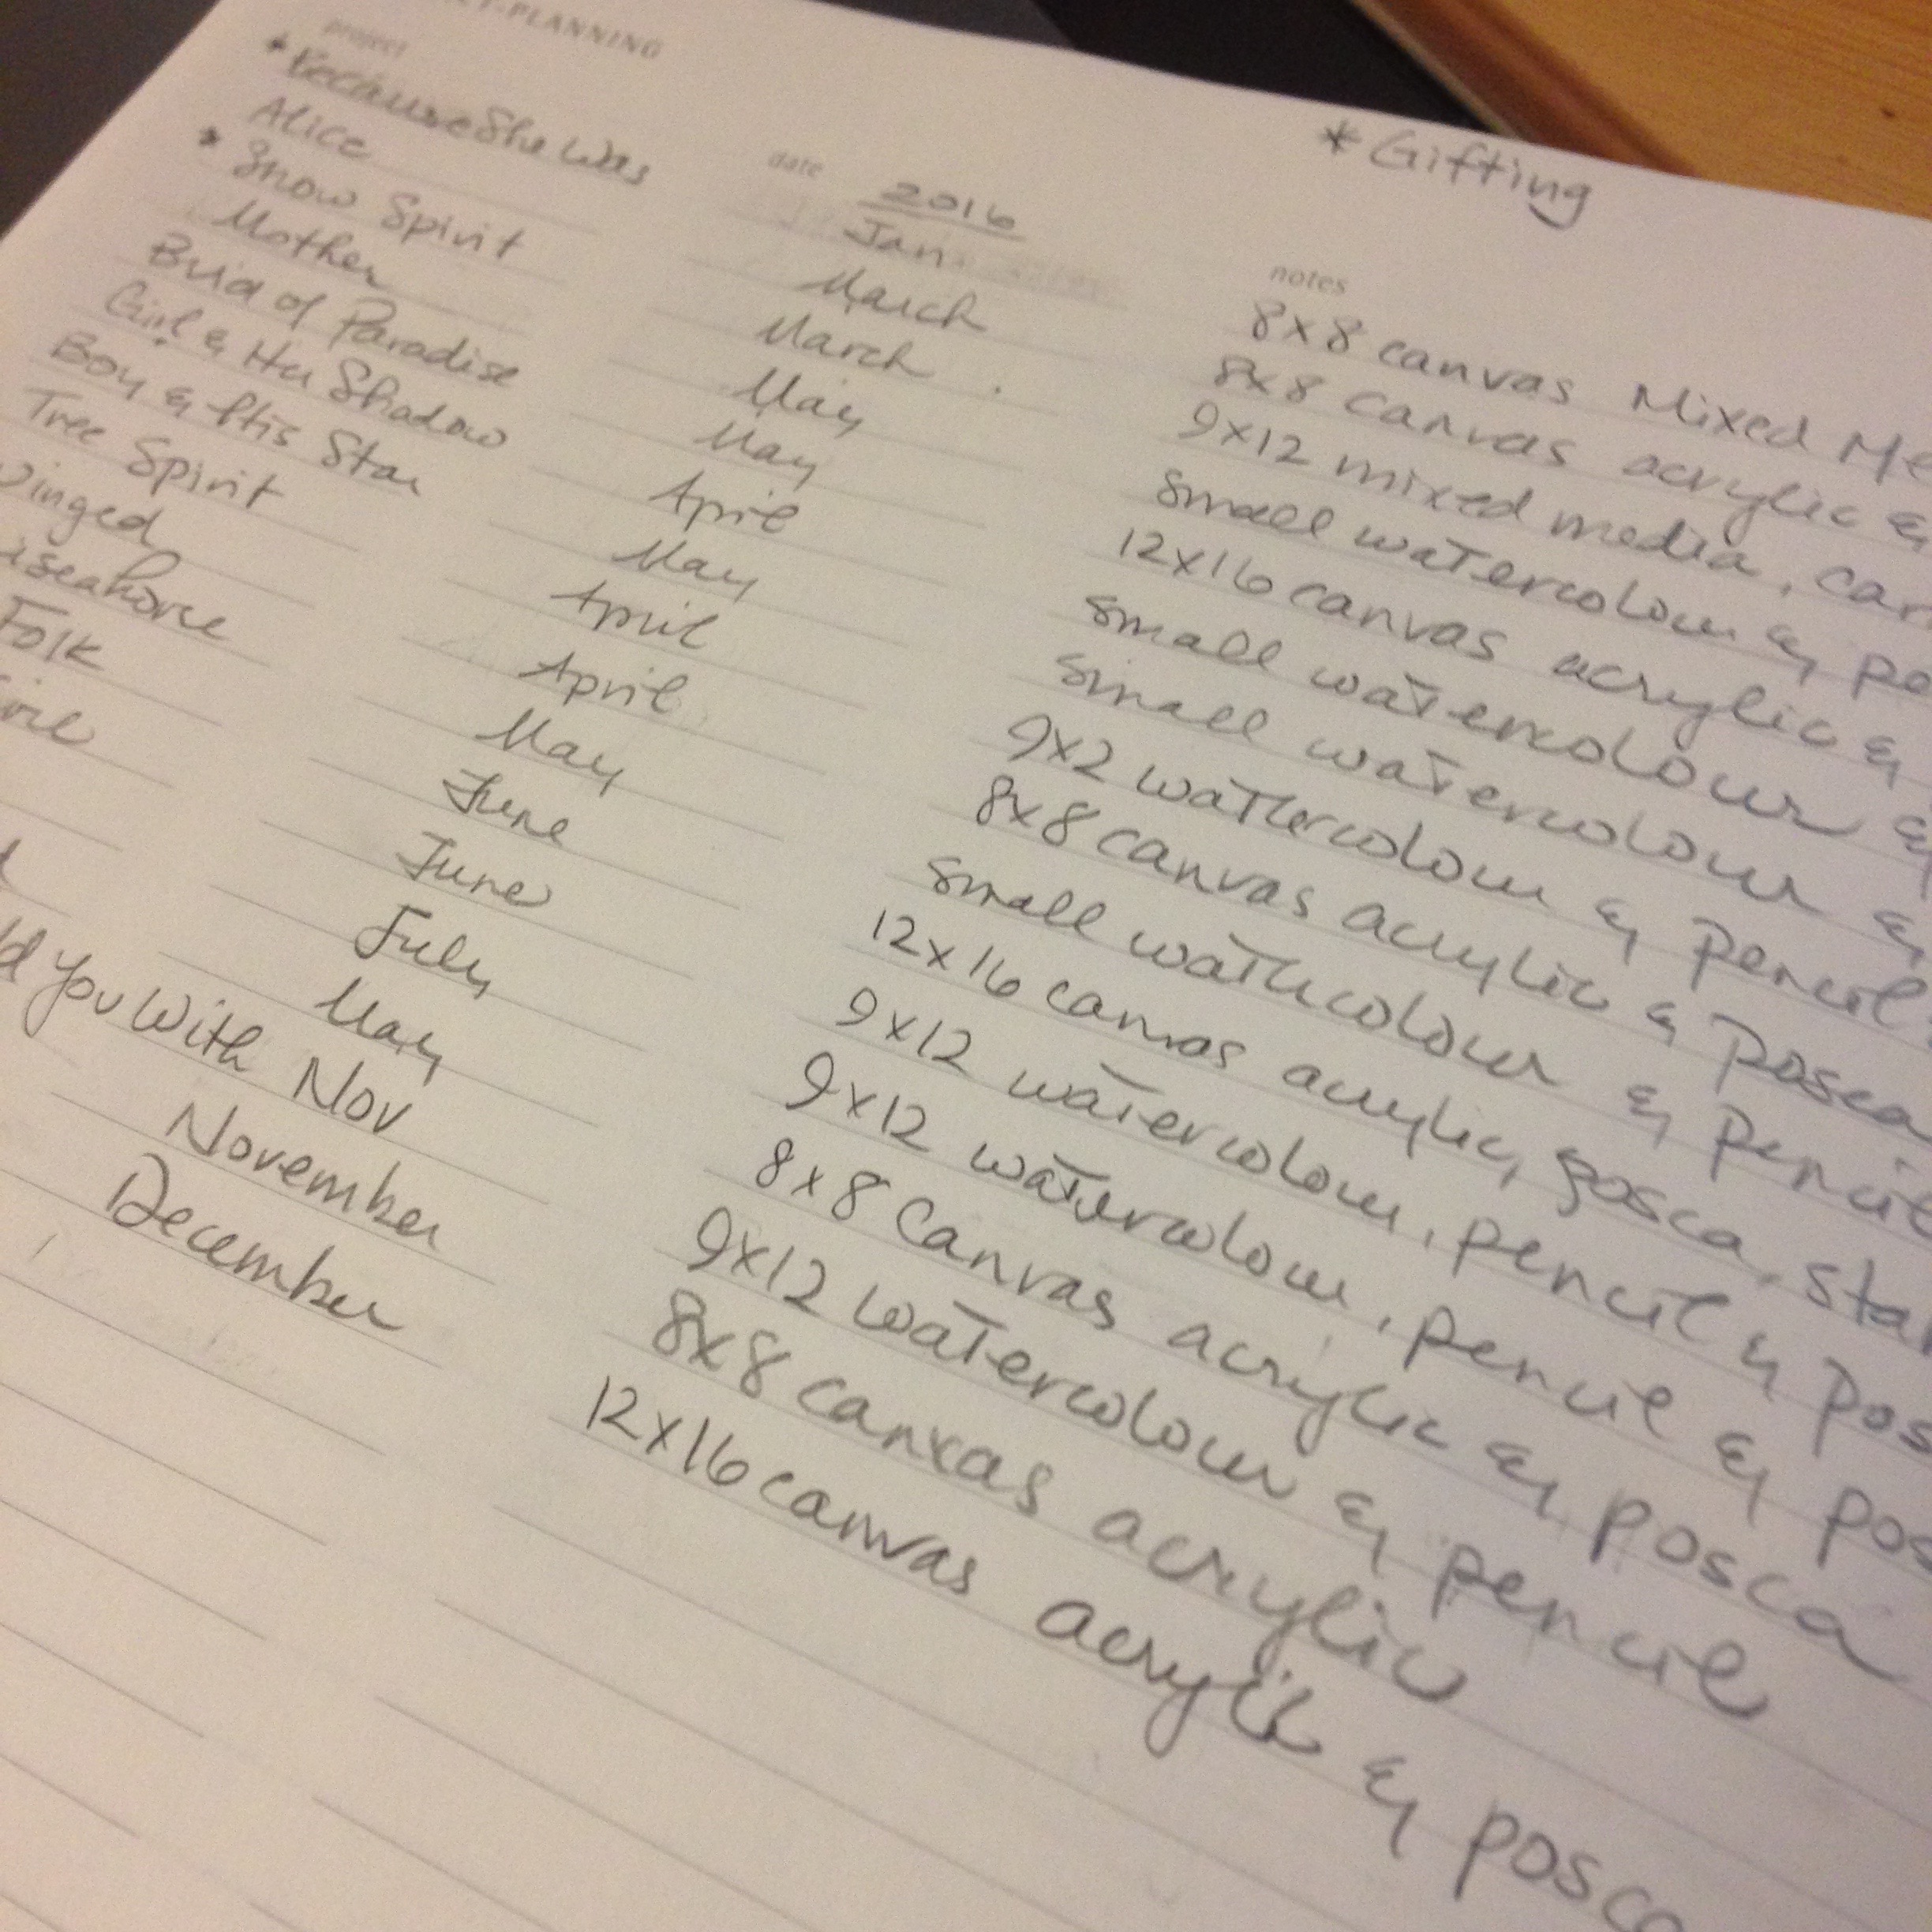 CT-PLANNING
*Gifting
project date 2016 notes
* Because She Was Jan 8x8 canvas Mixed Me
Alice March 8x8 canvas acrylic &
* Snow Spirit March 9x12 mixed media, can
Mother May small watercolour & pe
Bird of Paradise May 12x16 canvas acrylic &
Girl & Her Shadow April small watercolour &
Boy & His Star May small watercolour &
Tree Spirit April 9x2 watercolour & pencil
inged April 8x8 canvas acrylic & Posca
seahorse May small watercolour & pencil
Folk June 12x16 canvas acrylic, posca, sta
June 9x12 watercolour, pencil & pos
July 9x12 watercolour, pencil & pos
May 8x8 Canvas acrylic & posca
ld You With Nov 9x12 watercolour & pencil
November 8x8 canvas acrylic
December 12x16 canvas acrylic & posca